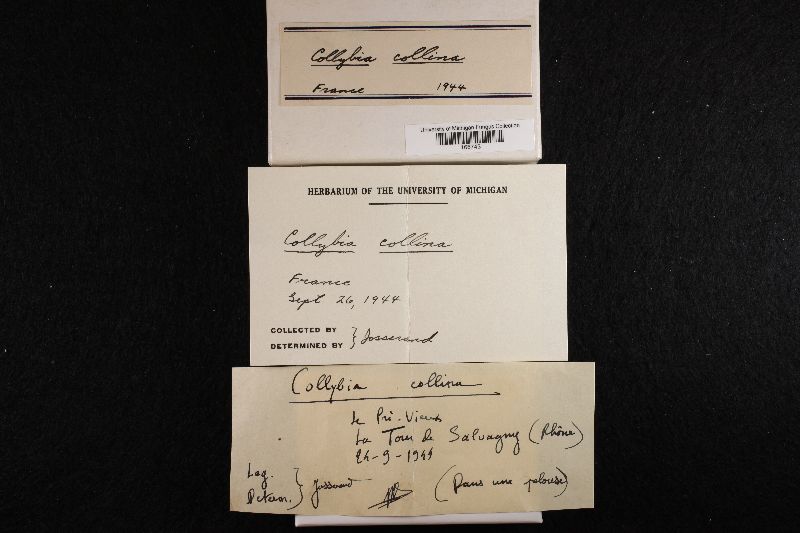 Collybia collina
France 1944
University of Michigan Fungus Collection
HERBARIUM OF THE UNIVERSITY OF MICHIGAN
Collybia collina
France
Sept 26, 1944
COLLECTED BY
DETERMINED BY } Josserand
Collybia collina
Le Pré-Vieux
La Tour de Salvagny (Rhône)
Leg.
Determ. } Josserand (Dans une pelouse)